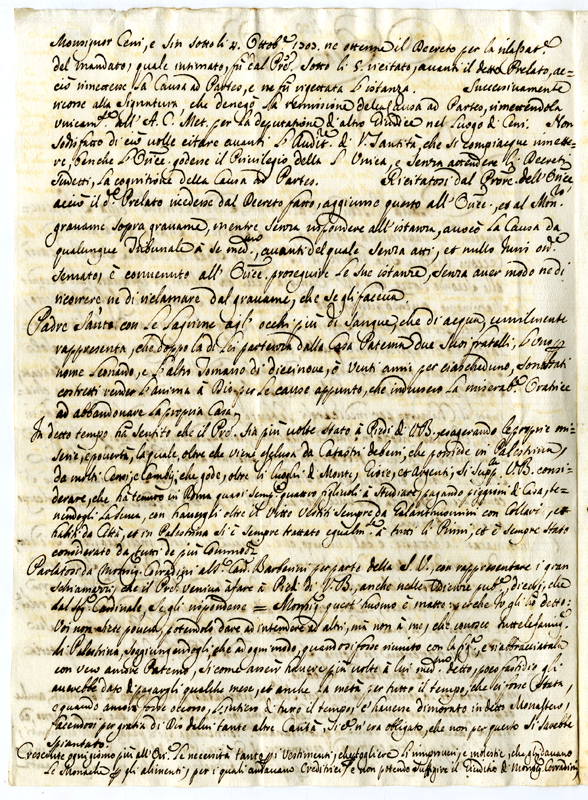 Monsignor Ceni, e sin sotto li 4. Ottob.e 1703. ne ottenne il Decreto per la rilassat.e
del mandato, quale intimato, fu al Pro.re sotto li 5. ricitato, avanti il detto Prelato, ac-
ciò rimettesse la Causa ad Parteo, e ne fu rigettata l'istanza. Successivamente
ricorse alla Signatura, che denegò la remissione della Causa ad Parteo, rimettendola
unicam.te all'A. C. Met. per la deputatione d'altro Giudice nel luogo di Ceni. Non
sodisfatto di ciò volle citare avanti l'Audit.re di V. Santità, che si compiacque rimette-
re, benche l'Orice. godesse il Privilegio della L. Unica, e senza attendere li Decreti
sudetti, la cognitione della Causa ad Parteo. Ricitatosi dal Proc.re dell'Orice
acciò il d.o Prelato recedesse dal Decreto fatto, aggiunse questo all'Orice., et al Mon.ro
gravame sopra gravame, mentre senza rispondere all'istanza, avocò la Causa da
qualunque Tribunale à se med.mo, avanti del quale senza atti, et nullo Juris ord.e
servato, è convenuto all'Orice. proseguire le sue istanze, senza aver modo ne di
ricorrere ne di reclamare dal gravame, che se gli faccia.
Padre Santo con le lagrime agl'occhi più di sangue, che di acqua, umilmente
rappresenta, che doppo la di lei partenza dalla Casa Paterna due suoi fratelli, l'uno
nome Leonardo, e l'altro Tomasso di diecinove, e venti anni per ciascheduno, sono stati
costretti render l'anima à Dio per le cause appunto, che indussero la miserab.e Oratrice
ad abbandonare la propria Casa,
In detto tempo hà sentito che il Pre. sia più volte stato à Piedi di V.B. esagerando le proprie mi-
serie, e povertà, la quale, oltre che viene esclusa da Catastri de beni, che possiede in Palestrina,
da molti Censi, e Cambij, che gode, oltre li luoghi di Monte, Gioie, et Argenti, si supp.ca V.B. consi-
derare, che hà tenuto in Roma quasi semp.e quattro figliuoli à studiare, pagando piggioni di Casa, te-
nendogli la serva, con havergli oltre il vitto vestiti sempre da Galanthuomini con Collari, et
habiti da Città, et in Palestrina si è sempre trattato egualm.te à tutti li Primi, et è sempre stato
considerato da tutti de più Commodi.
Parlatosi da Monsig. Corradini all'Em. Barberini per parte della S. V., con rappresentare i gran
schiamazzi, che il Pre. veniva à fare à Piedi di V.B., anche nelle Udienze pub.e, dicessi, che
dal Sig. Cardinale, se gli rispondesse = Monsig. quest'huomo è matto, et che Io gli hò detto:
Voi non siete povero, potendolo dare ad intendere ad altri, mà non à me, che conosco tutte le famig.e
di Palestrina, soggiungendogli, che ad ogni modo, quando si fosse riunito con la fig.a, e riabbracciatala
con vero amore Paterno, si come asserì havere più volte à lui med.mo detto, poco fastidio gli
avrebbe dato di pagargli qualche mese, et anche la metà per tutto il tempo, che lei fosse stata,
e quando ancora fosse occorso, l'intiero di tutto il tempo, e havesse dimorato in detto Monastero,
facendosi per gratia di Dio delui tante altre Carità, si d'n'era obligato, che non per questo si sarebbe
spiantato.
Cresciute ogni giorno più all'Ori. le necessità tanto p. i vestimenti, che togliere l'improveri, e molestie, che gli davano
le Monache p. gli alimenti, per i quali andavano Creditrici, e non potendo suffigire il Giuditio di Monsig. Corradini